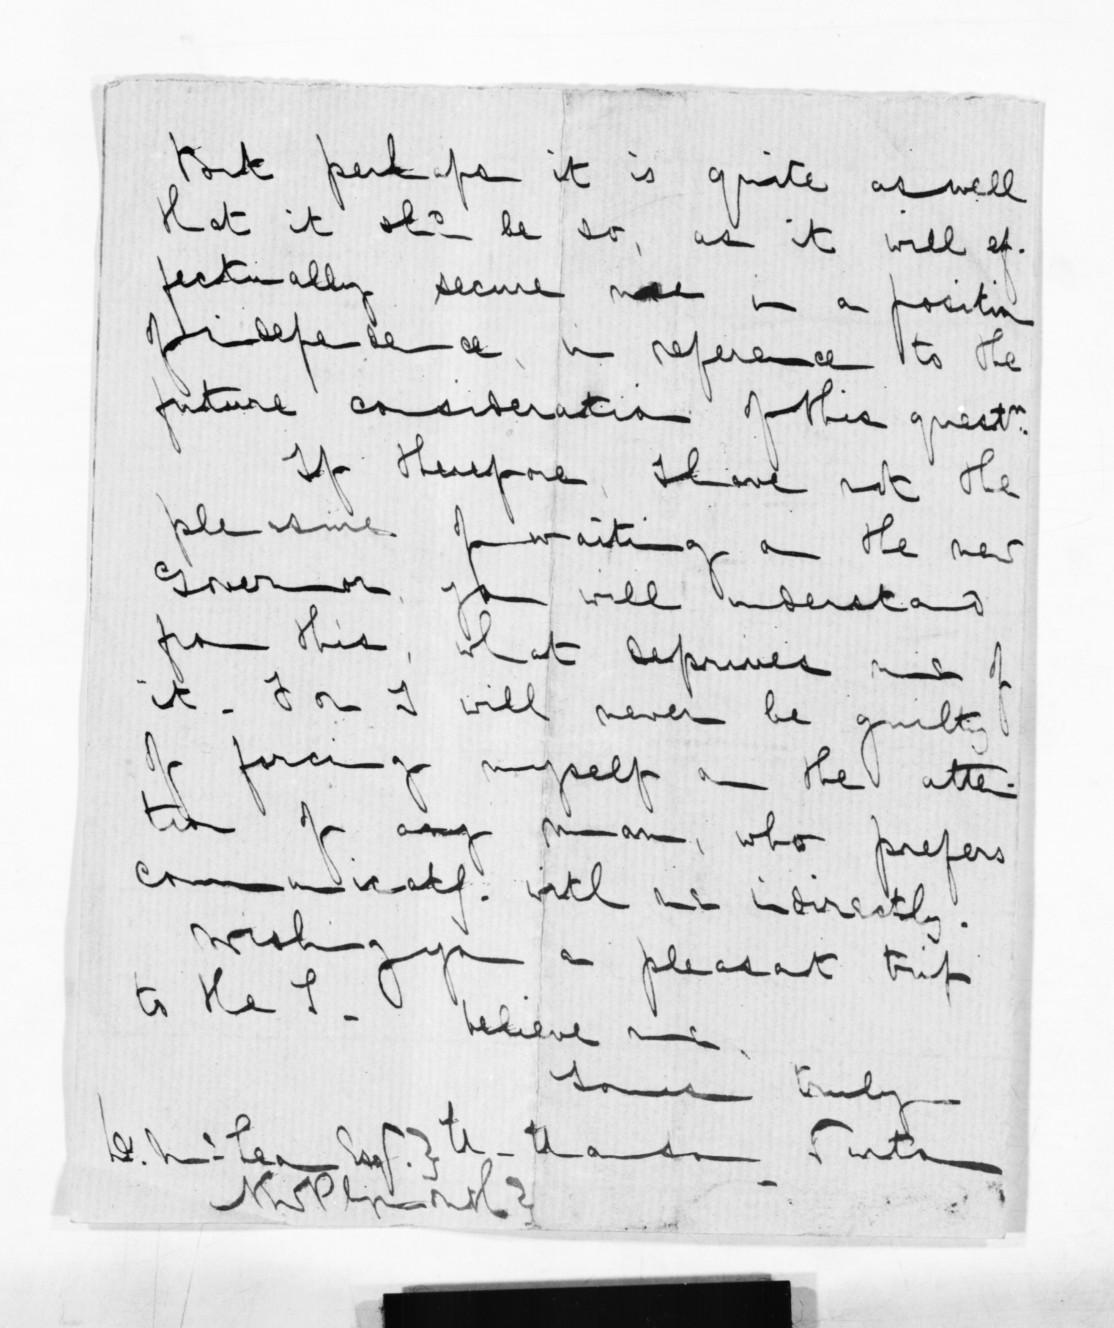 But perhaps it is quite as well
that it sh.d be so, as it will ef-
fectually secure me in a position
of independence, in reference to the
future consideration of this quest.n.
If therefore, I have not the
pleasure of waiting on the new
Governor, you will understand
from this, what deprives me of
it - For I will never be guilty
of forcing myself on the atten-
tion of any man, who prefers
communicat.g. with me indirectly.
Wishing you a pleasant trip
to the S. -
believe me,
Yours truly
D. McLean Esq.} Turton
New Plymouth}